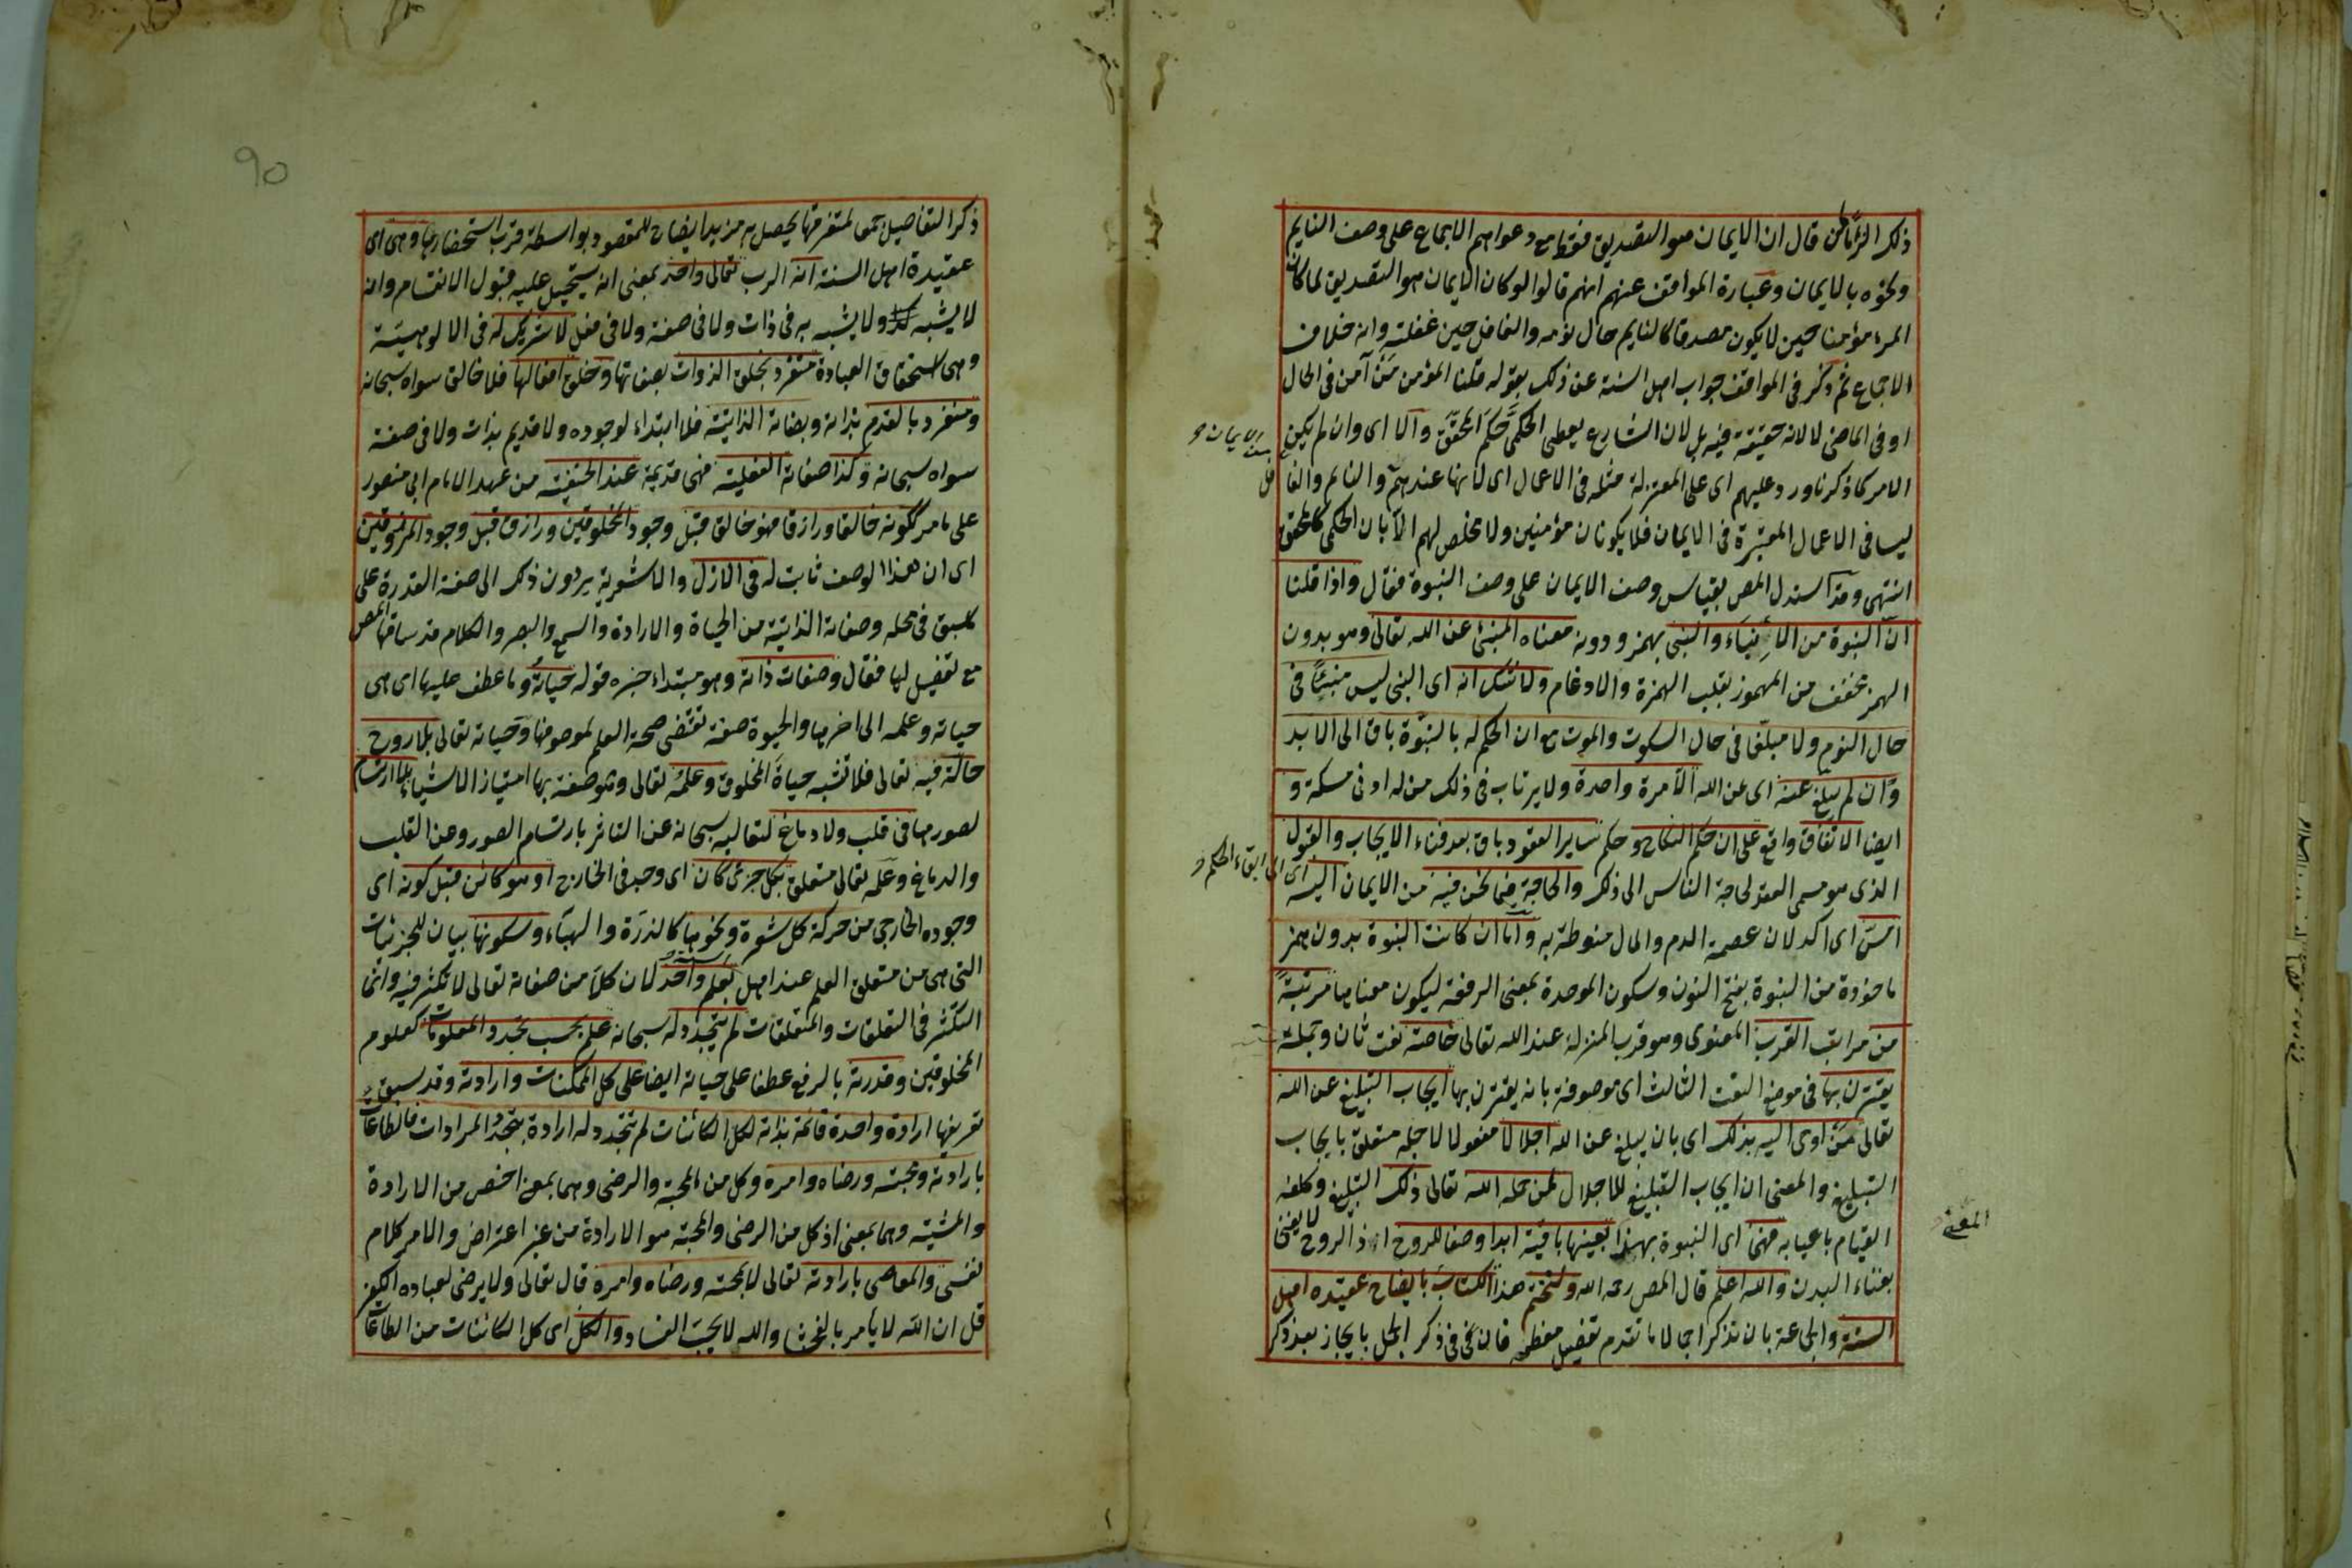 ذلك الزاما لمن قال ان الايمان هو التصديق فقط مع دعواهم الاجماع على وصف النايم
ونحوه بالايمان وعبارة المواقف عنهم انهم قالوا لو كان الايمان هو التصديق لما كان
المرء مؤمنا حين لا يكون مصدقا كالنايم حال نومه والغافل حين غفلته وانه خلاف
الاجماع ثم ذكر في المواقف جواب اهل السنة عن ذلك بقوله قلنا المؤمن من آمن في الحال
او في الماضي لا لانه حقيقة فيه بل لان الشارع يعطي الحكمي حكم المحقق والا اى وان لم يكن
الامر كما ذكرنا ورد عليهم اى على المعتزلة مثله في الاعمال اى لانها عندهم والنايم والغافل
ليسا في الاعمال المعتبرة في الايمان فلا يكونان مؤمنين ولا مخلص لهم الا بان الحكمي كالمحقق
انتهى وقد استدل المص بقياس وصف الايمان على وصف النبوة فقال واذا قلنا
ان النبوة من الانباء والنبي بهمز ودونه معناه المنبئ عن الله تعالى وهو بدون
الهمز مخفف من المهموز بقلب الهمزة والادغام ولا شك انه اى النبي ليس منبئا في
حال النوم ولا مبلغا في حال السكوت والموت مع ان الحكم له بالنبوة باق الى الابد
وان لم يبلغ عنه اى عن الله الا مرة واحدة ولا يرتاب في ذلك من له ادنى مسكة و
ايضا الاتفاق واقع على ان حكم النكاح وحكم ساير العقود باق بعد فناء الايجاب والقبول
الذى هو مسمى العقد لحاجة الناس الى ذلك والحاجة فيما نحن فيه من الايمان اليه اى الى ابقاء الحكم
امس اى اكد لان عصمة الدم والمال منوطة به واما ان كانت النبوة بدون همز
ماخوذة من النبوة بفتح النون وسكون الموحدة بمعنى الرفعة ليكون معناها مرتبة
من مراتب القرب المعنوى وهو قرب المنزلة عند الله تعالى خاصة نعت ثان وجملة
يقترن بها في موضع النعت الثالث اى موصوفة بانه يقترن بها ايجاب التبليغ عن الله
تعالى من اوحى اليه بذلك اى بان يبلغ عن الله اجلالا مفعولا لاجله متعلق بايجاب
التبليغ والمعنى ان ايجاب التبليغ للاجلال لمن حمله الله تعالى ذلك التبليغ وكلفه
القيام باعبايه فهى اى النبوة بهذا المعنى بعينها باقية ابدا وصفا للروح اذ الروح لا يفنى
بفناء البدن والله اعلم قال المص رحمه الله ولنختم هذا الكتاب بايضاح عقيدة اهل
السنة والجماعة بان نذكر اجمالا ما تقدم تفصيل معظمه فان في ذكر الجمل بايجاز بعد ذكر
90
ذكر التفاصيل جمعا لمتفرقها يحصل به مزيد ايضاح للمقصود بواسطة قرب استحضارها وهى اى
عقيدة اهل السنة انه الرب تعالى واحد بمعنى انه يستحيل عليه قبول الانقسام وانه
لا يشبه ولا يشبه به في ذات ولا في صفة ولا في فعل لا شريك له في الالوهية
وهى استحقاق العبادة متفرد بخلق الذوات بصفاتها وخلق افعالها فلا خالق سواه سبحانه
ومتفرد بالقدم بذاته وبصفاته الذاتية فلا ابتداء لوجوده ولا قديم بذات ولا في صفة
سواه سبحانه وكذا صفاته الفعلية فهى قديمة عند الحنفية من عهد الامام ابى منصور
على ما مر ككونه خالقا ورازقا فهو خالق قبل وجود المخلوقين ورازق قبل وجود المرزوقين
اى ان هذا الوصف ثابت له في الازل والاشعرية يردون ذلك الى صفة القدرة على
ما سبق في محله وصفاته الذاتية من الحياة والارادة والسمع والبصر والكلام قد ساقها المص
مع تفصيل لها فقال وصفات ذاته وهو مبتداء خبره قوله حياته وما عطف عليها اى هى
حياته وعلمه الى اخرها والحيوة صفة تقتضى صحة العلم لموصوفها وحياته تعالى بلا روح
حالة فيه تعالى فلا تشبه حياة المخلوق وعلمه تعالى وهو صفة بها امتياز الاشياء بلا ارتسام
لصورها في قلب ولا دماغ لتعاليه سبحانه عن التاثر بارتسام الصور وعن القلب
والدماغ وعلمه تعالى متعلق بكل جزئى كان اى وجد في الخارج او هو كائن قبل كونه اى
وجوده الخارجى من حركة كل شعرة ونحوها كالذرة والهباء وسكونها بيان للجزئيات
التى هى من متعلق العلم عند اهل السنة بعلم واحد لان كلا من صفاته تعالى لا تكثر فيه وانما
التكثر في التعلقات والمتعلقات لم يتجدد له سبحانه علم بحسب تجدد المعلومات كعلوم
المخلوقين وقدرته بالرفع عطفا على حياته ايضا على كل الممكنات وارادته وقد سبق
تعريفها ارادة واحدة قائمة بذاته لكل الكائنات لم تتجدد له ارادة بتجدد المرادات فالطاعات
بارادته ومحبته ورضاه وامره وكل من المحبة والرضى وهما بمعنى اخص من الارادة
والمشيئة وهما بمعنى اذ كل من الرضى والمحبة هو الارادة من غير اعتراض والامر كلام
نفسى والمعاصى بارادته تعالى لا بمحبته ورضاه وامره قال تعالى ولا يرضى لعباده الكفر
قل ان الله لا يأمر بالفحشا والله لا يحب الفساد والكل اى كل الكائنات من الطاعات